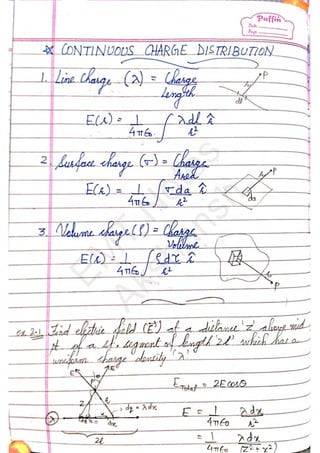 Puffin
Date
Page
* CONTINUOUS CHARGE DISTRIBUTION
1. Line Charge (λ) = Charge
Length
E(r) = 1/4π€₀ ∫ λdl/r² r̂
P
r
dl
2. Surface charge (σ) = Charge
Area
E(r) = 1/4π€₀ ∫ σda/r² r̂
P
r
da
3. Volume charge (ρ) = Charge
Volume
E(r) = 1/4π€₀ ∫ ρdτ/r² r̂
r
P
ex 2.1 Find electric field (E⃗) at a distance 'z' above mid
pt. of a st. segment of length '2l' which has a
uniform charge density 'λ'.
E E
P
E_Total = 2Ecosθ
z r
dq = λdx
λ
dx
2l
E = 1/4π€₀ λdx/r²
= 1/4π€₀ λdx/(z²+x²)